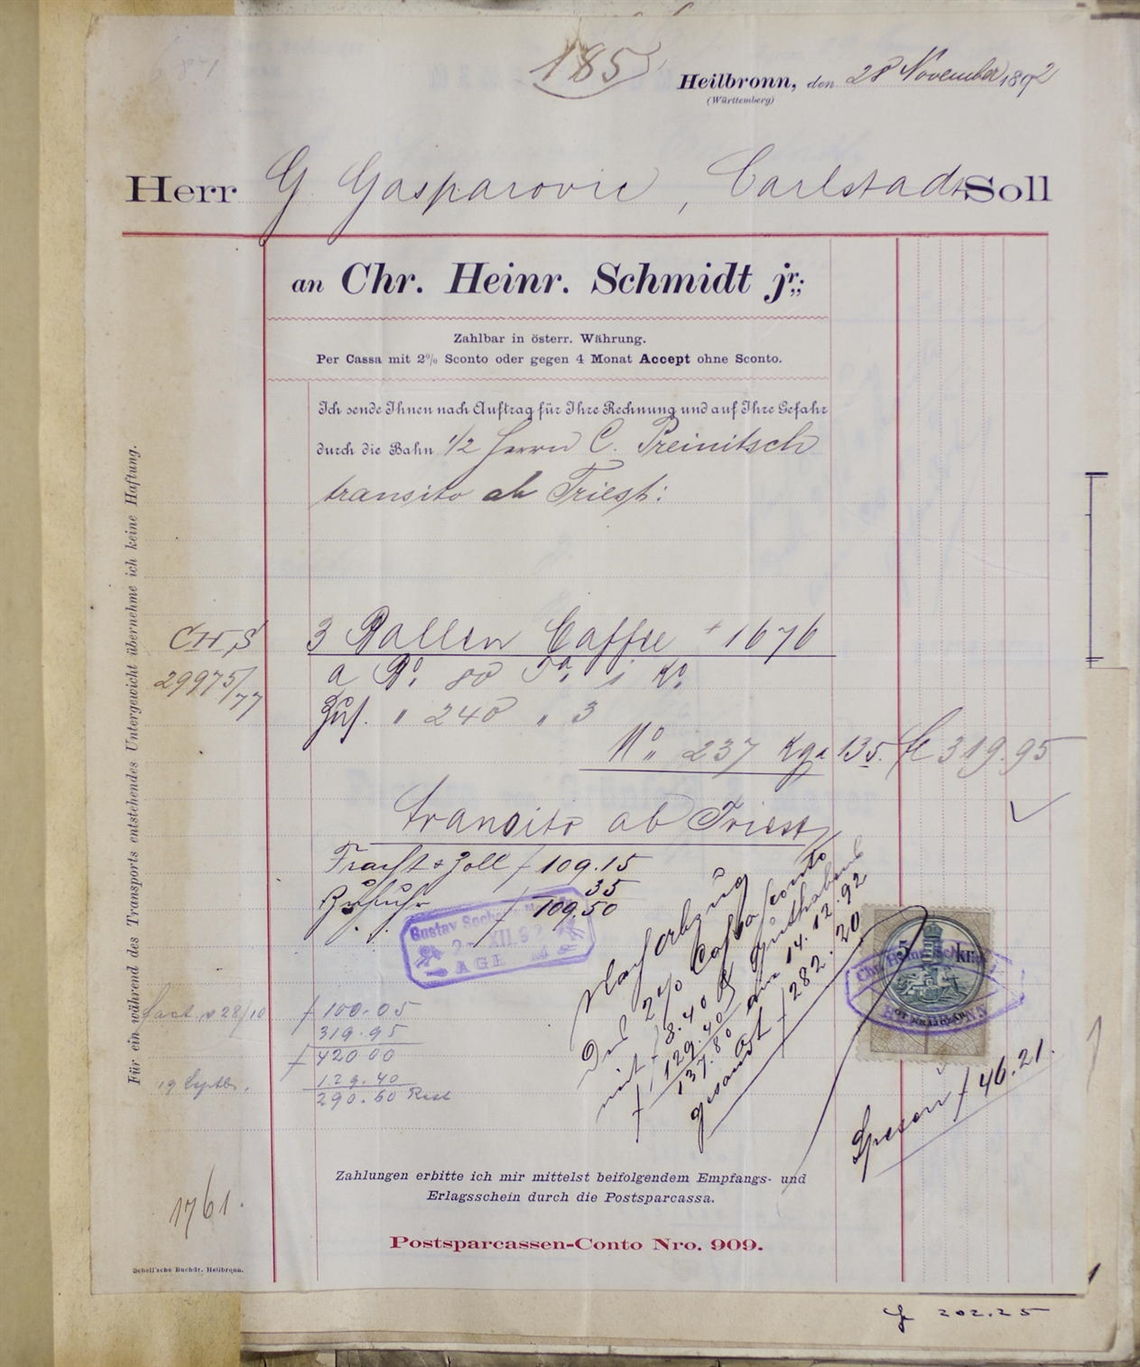 185
Heilbronn, den 28 November 1892
(Württemberg)
Herr G. Gasparovic, Carlstadt Soll
an Chr. Heinr. Schmidt jr.,
Zahlbar in österr. Währung.
Per Cassa mit 2% Sconto oder gegen 4 Monat Accept ohne Sconto.
Ich sende Ihnen nach Auftrag für Ihre Rechnung und auf Ihre Gefahr
durch die Bahn 1/2 Herrn C. Preinitsch
transito ab Triest:
Für ein während des Transports entstehendes Untergewicht übernehme ich keine Haftung.
CHS 3 Ballen Caffee + 1676
29975/77 a Bo. 80 Ta. 1 Ko.
Zus. " 240 " 3
No. 237 Kga 135. fl 319.95
transito ab Triest
Fracht & Zoll f 109.15
Zufuhr 35
f 109.50
Gustav
2 XII. 92
AGRAM
Nach Abzug
2% Cassa Sconto
mit f 8.40 & Guthabens
f 129.40
137.80 am 14.12.92
gesandt f 282.20
5 kr.
Chr. Heinr. Schmidt
HEILBRONN
fact. v 28/10 f 100.05
319.95
f 420.00
19 Septbr. 129.40
290.60 Rest
Spesen f 46.21.
1761.
Zahlungen erbitte ich mir mittelst beifolgendem Empfangs- und
Erlagsschein durch die Postsparcassa.
Postsparcassen-Conto Nro. 909.
Schell'sche Buchdr. Heilbronn.
f 202.25